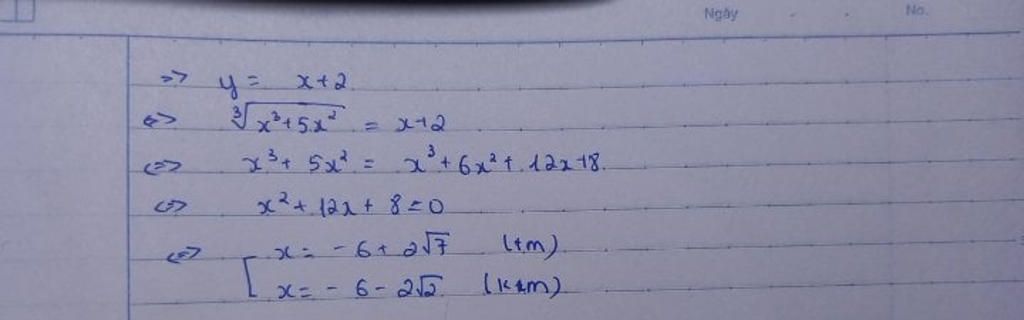 Ngày . . No.
=> y = x+2
<=> ∛(x³+5x²) = x+2
<=> x³+ 5x² = x³+6x²+ 12x+8.
<=> x²+ 12x+ 8=0
<=> [ x= - 6+ 2√7 (tm)
x= - 6 - 2√2 (ktm)